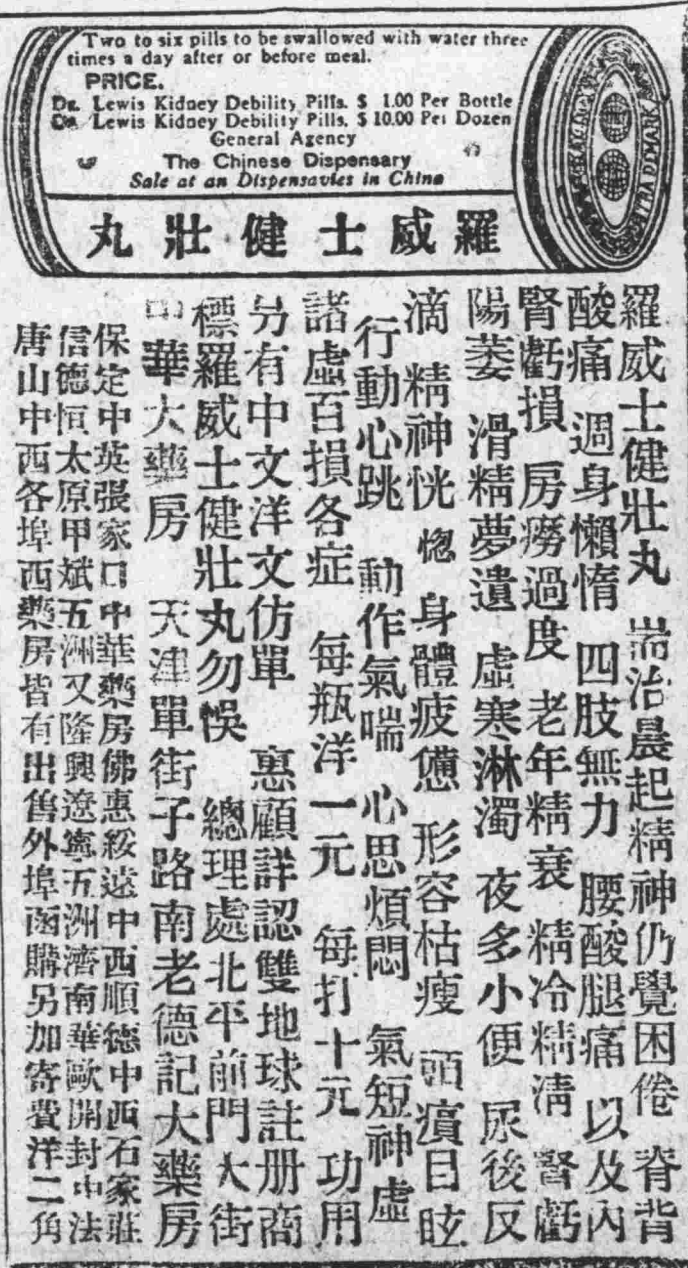 Two to six pills to be swallowed with water three
times a day after or before meal.
PRICE.
Dr. Lewis Kidney Debility Pills. $ 1.00 Per Bottle
Dr. Lewis Kidney Debility Pills. $ 10.00 Per Dozen
General Agency
The Chinese Dispensary
Sale at an Dispensavies in China
TRADEMARK
羅威士健壯丸
羅威士健壯丸 耑治晨起精神仍覺困倦 脊背
酸痛 週身懶惰 四肢無力 腰酸腿痛 以及內
腎虧損 房癆過度 老年精衰 精冷精淸 腎虧
陽萎 滑精夢遺 虛寒淋濁 夜多小便 尿後反
滴 精神恍惚 身體疲憊 形容枯瘦 頭 目眩
行動心跳 動作氣喘 心思煩悶 氣短神虛
諸虛百損各症 每瓶洋一元 每打十元 功用
另有中文洋文仿單 惠顧詳認雙地球註册商
標羅威士健壯丸勿悞 總理處北平前門大街
中華大藥房 天津單街子路南老德記大藥房
保定中英張家口中華藥房佛惠綏遠中西順德中西石家莊
信德恒太原甲斌五洲又隆興遼寧五洲濟南華歐開封中法
唐山中西各埠西藥房皆有出售外埠函購另加寄費洋二角